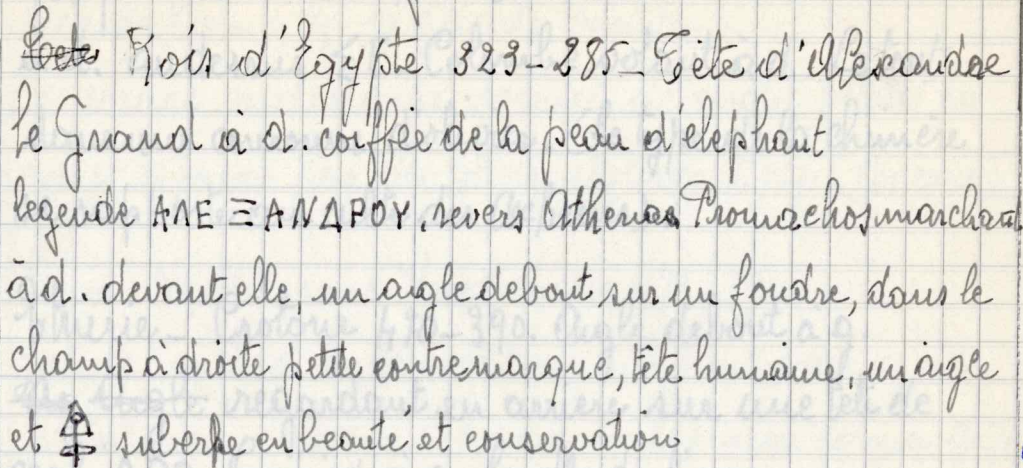 Rois d'Egypte 323-285 - Tête d'Alexandre
le Grand à d. coiffée de la peau d'elephant
legende ΑΛΕΞΑΝΔΡΟΥ. revers Athenas Promachos marchant
à d. devant elle, un aigle debout sur un foudre, dans le
champ à droite petite contremarque, tête humaine, un aigle
et superbe en beauté et conservation